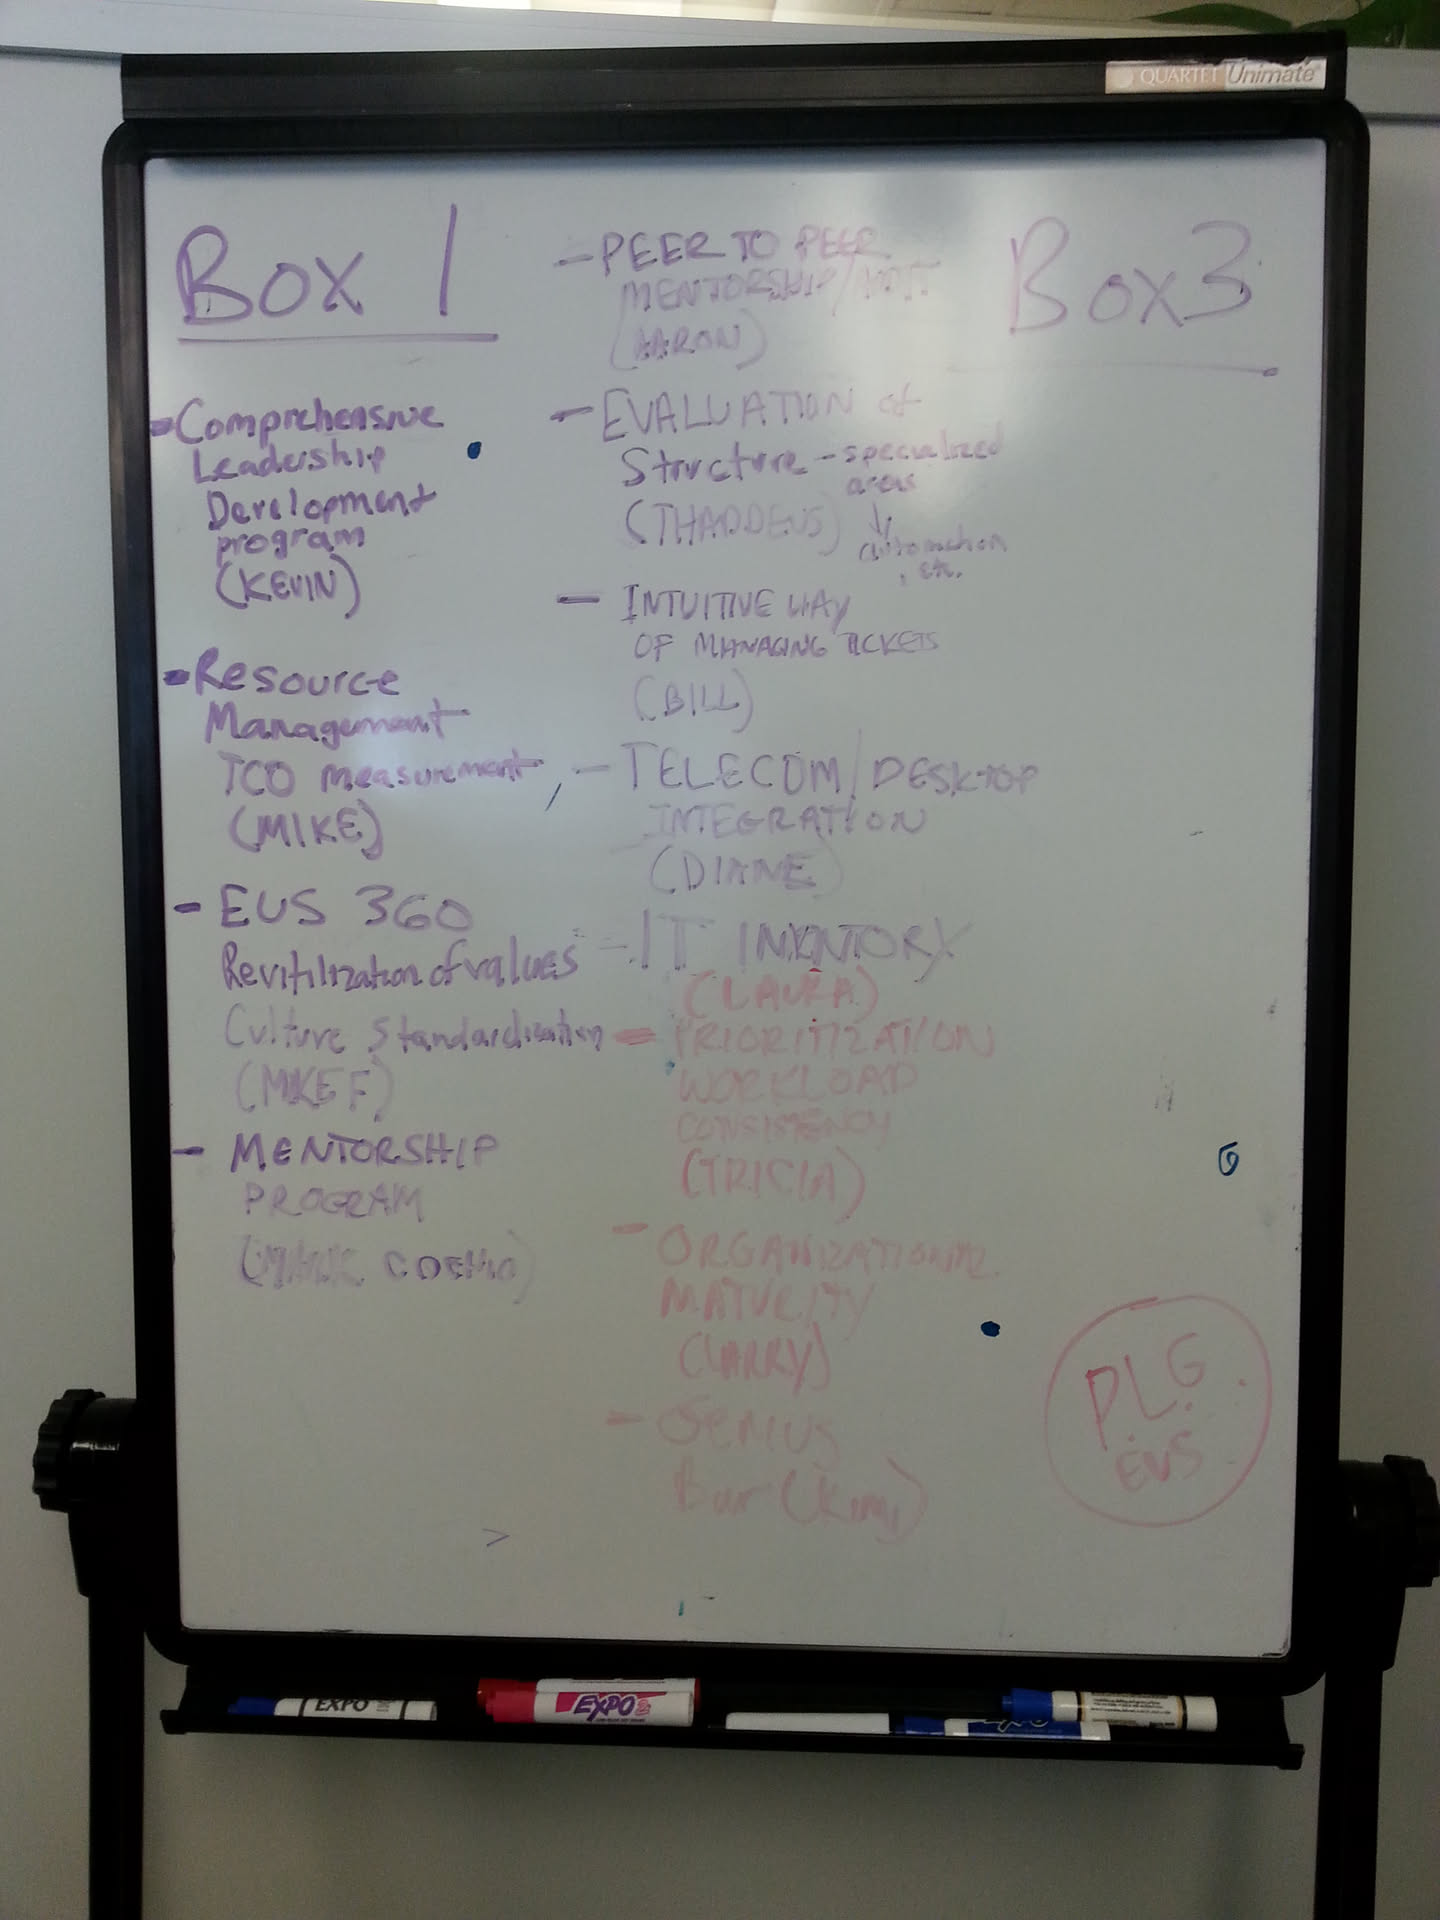 QUARTET Unimate
Box 1
- Comprehensive
Leadership
Development
program
(KEVIN)
- Resource
Management
TCO measurement
(MIKE)
- EUS 360
Revitilization of values
Culture Standardization
(MIKE F)
- MENTORSHIP
PROGRAM
- PEER TO PEER
MENTORSHIP/
(AARON)
- EVALUATION of
Structure - specialized
areas
(THADDEUS) ↓
automation
, etc.
- INTUITIVE WAY
OF MANAGING TICKETS
(BILL)
- TELECOM/DESKTOP
INTEGRATION
(DIANE)
- IT INVENTORY
(LAURA)
- PRIORITIZATION
WORKLOAD
CONSISTENCY
(TRICIA)
- ORGANIZATIONAL
MATURITY
(LARRY)
- Genius
Bar (Kimi)
Box 3
P.L.G.
EUS
EXPO
EXPO